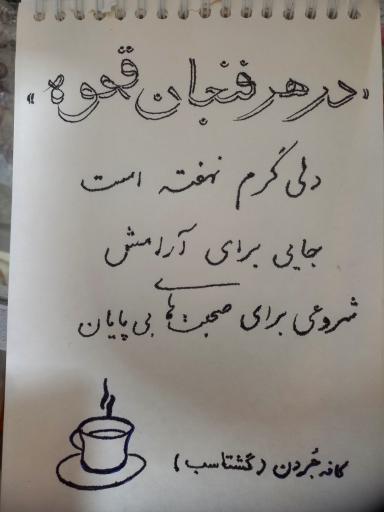 «در هر فنجان قهوه»
دلی گرم نهفته است
جایی برای آرامش
شروعی برای صحبت‌های بی پایان
کافه جُردن (گشتاسب)